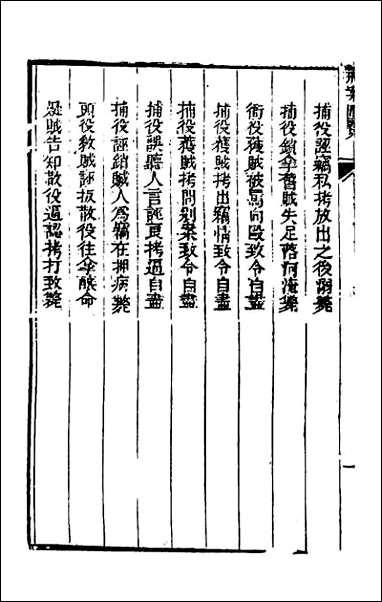 捕役誣竊私拷放出之後溺斃
捕役鎖拏舊賊失足落河淹斃
衙役獲賊被罵向毆致令自盡
捕役獲賊拷出竊情致令自盡
捕役獲賊拷問别案致令自盡
捕役誤聽人言誣良拷逼自盡
捕役誣鎖賊人為竊在押病斃
頭役教賊誣扳散役往拿釀命
疑賊告知散役逼認拷打致斃